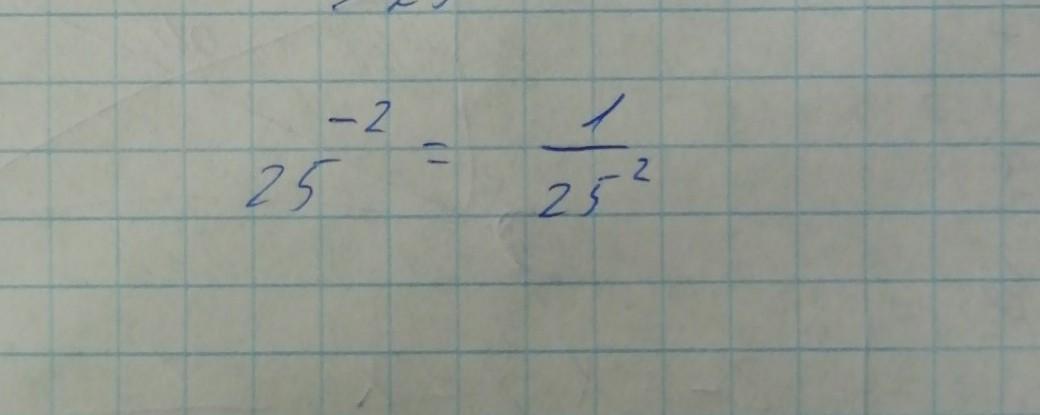 25^{-2} = \frac{1}{25^2}